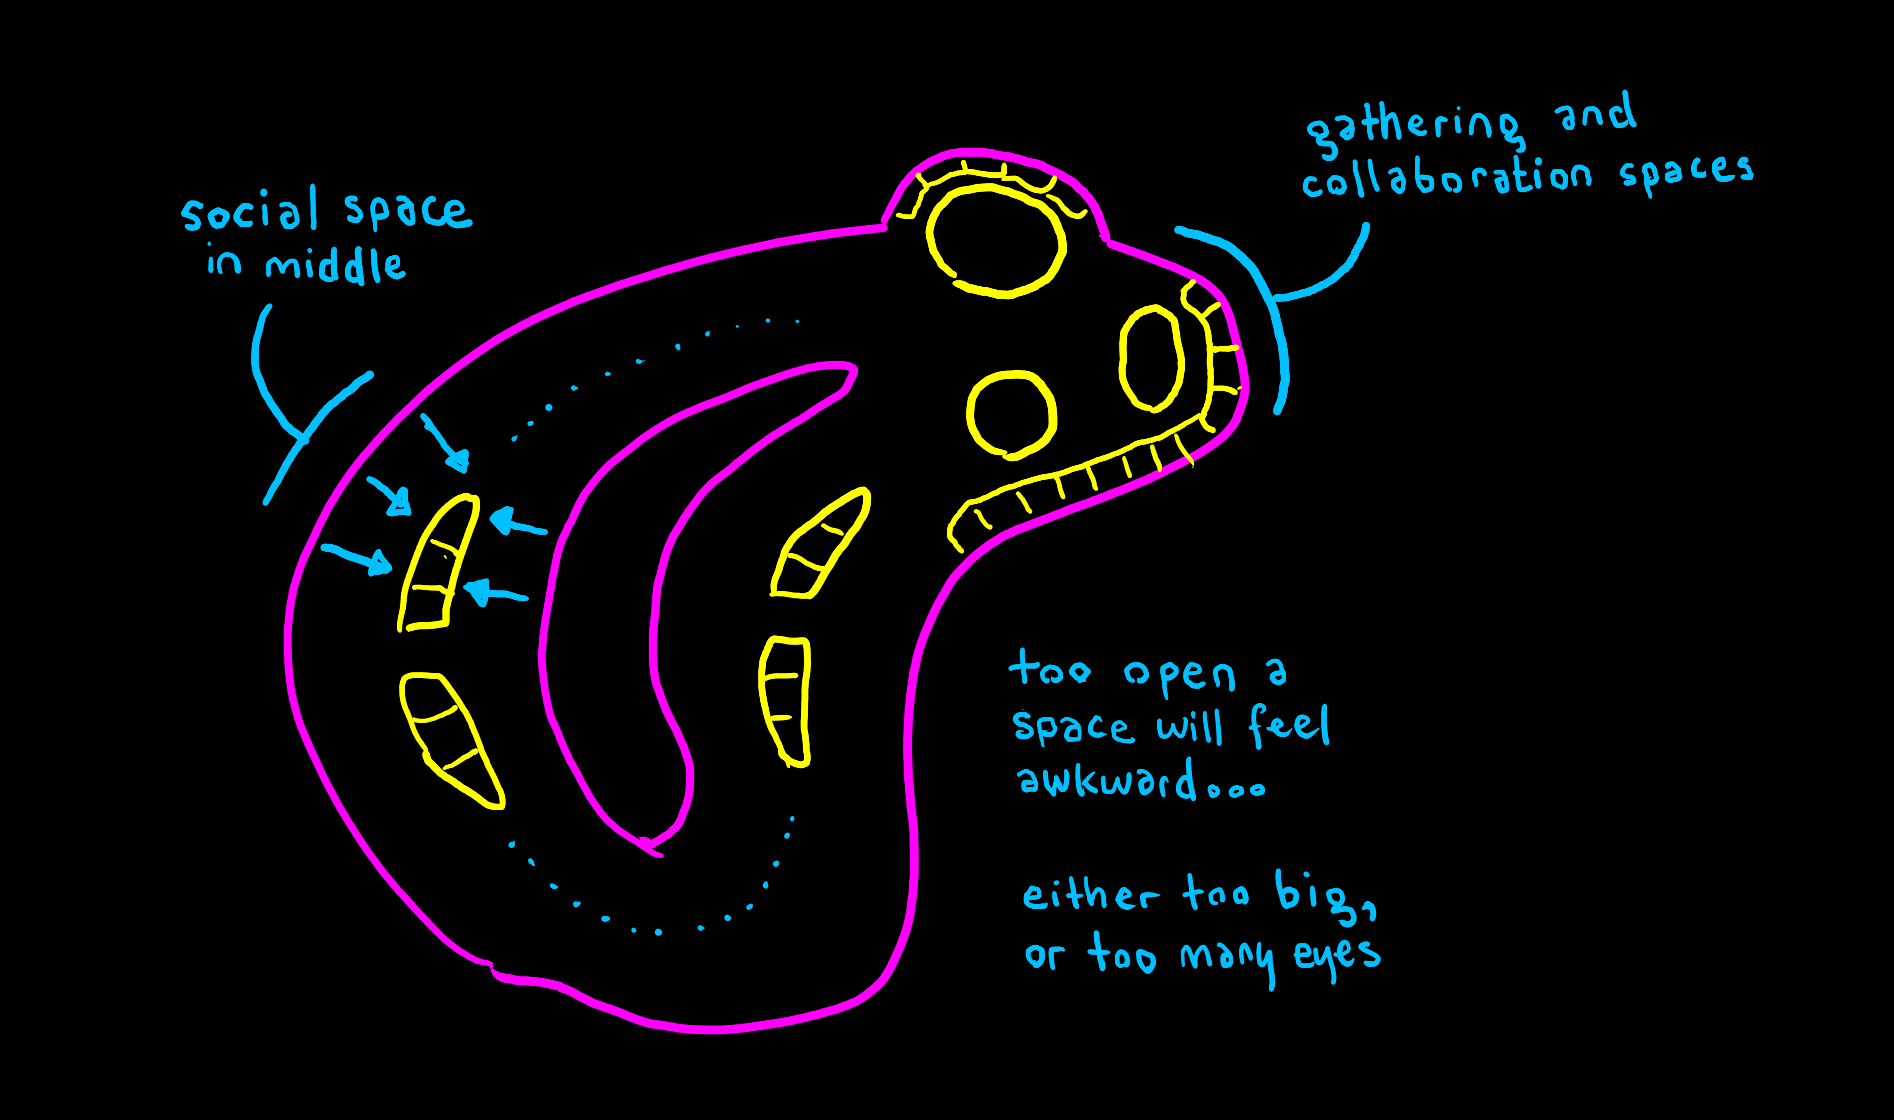 social space
in middle
gathering and
collaboration spaces
too open a
space will feel
awkward...
either too big,
or too many eyes